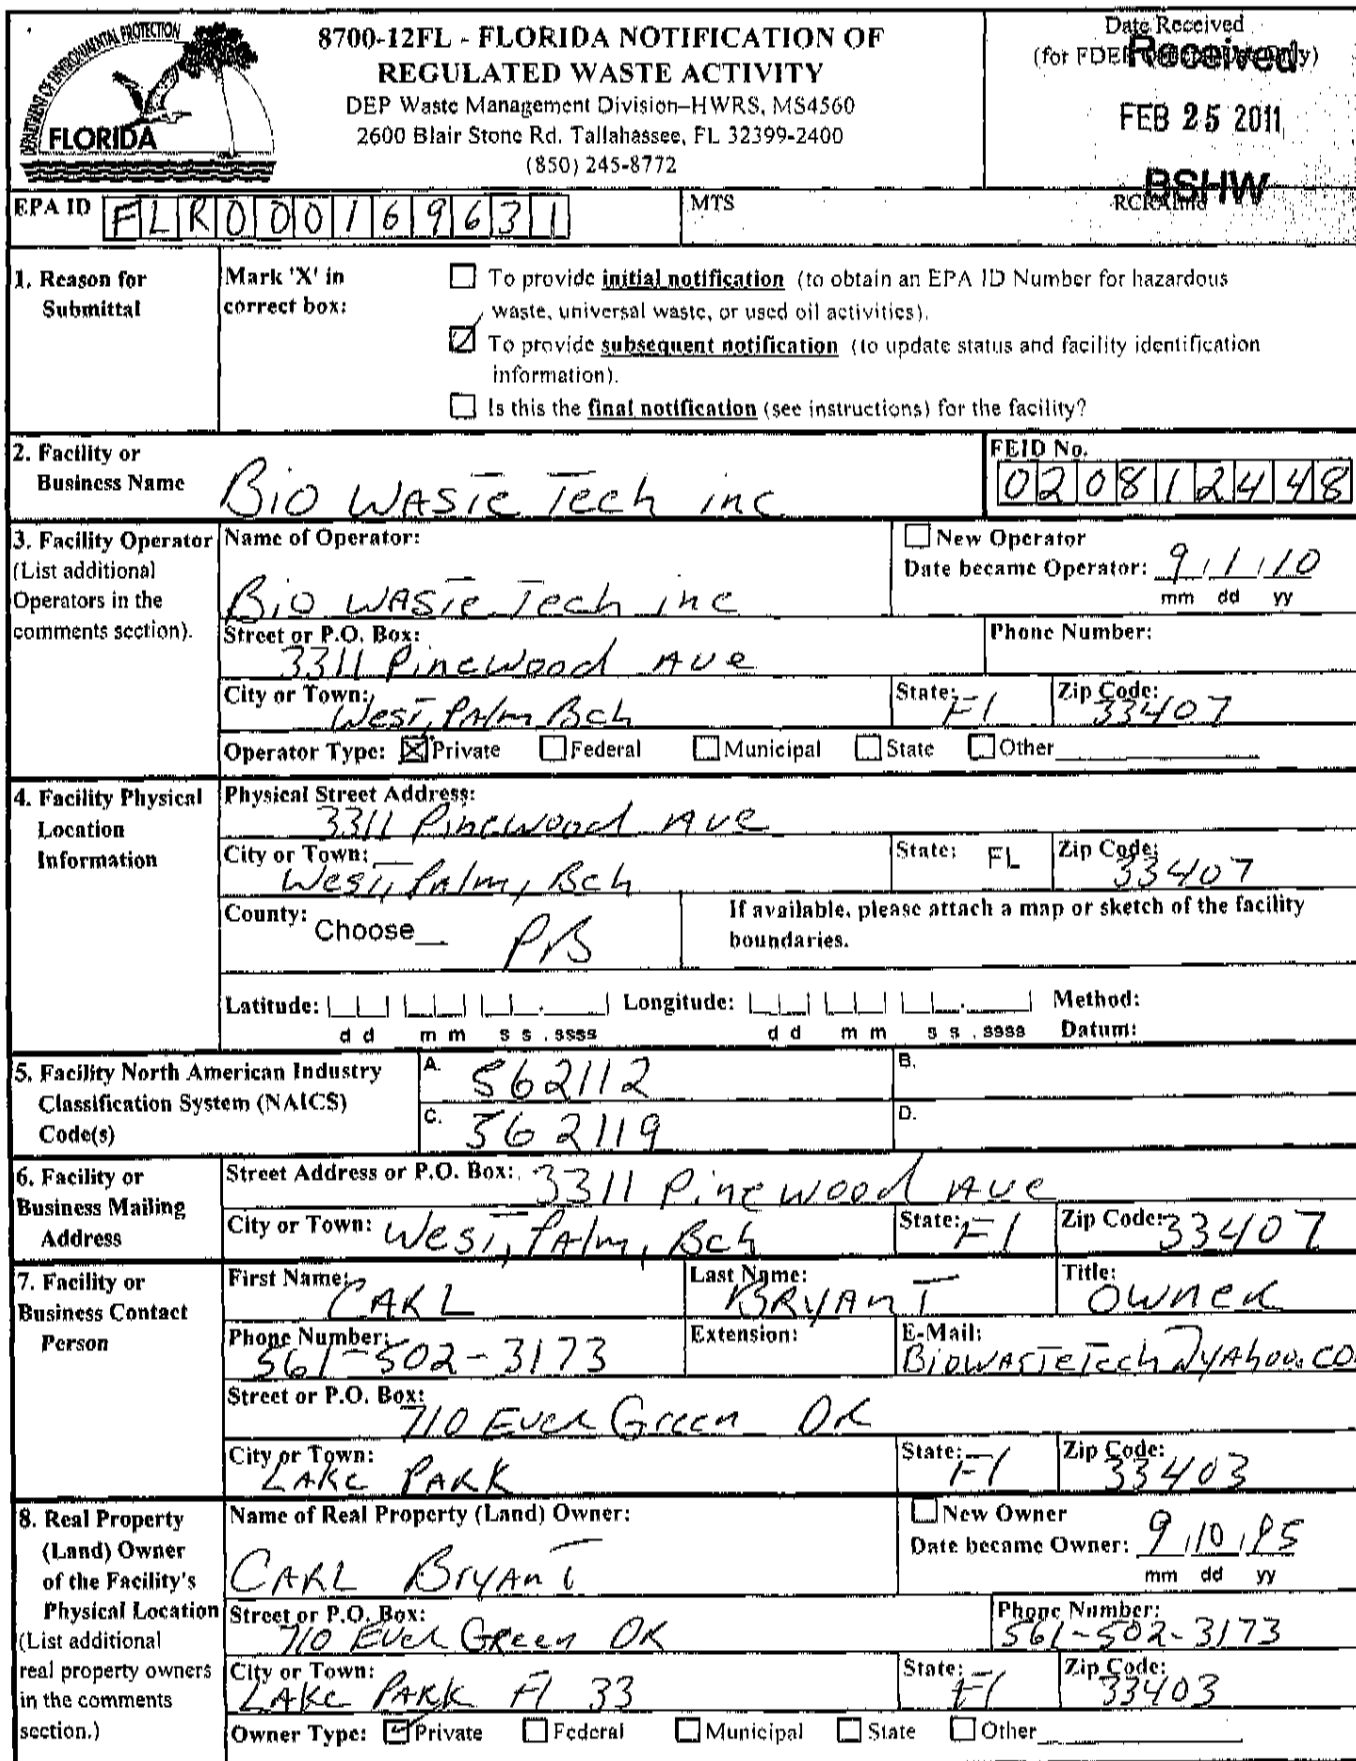 DEPARTMENT OF ENVIRONMENTAL PROTECTION
FLORIDA
8700-12FL - FLORIDA NOTIFICATION OF
REGULATED WASTE ACTIVITY
DEP Waste Management Division–HWRS, MS4560
2600 Blair Stone Rd. Tallahassee, FL 32399-2400
(850) 245-8772
Date Received
(for FDEP
Received
FEB 25 2011
BSHW
EPA ID FLR000169631
MTS
1. Reason for
Submittal
Mark 'X' in
correct box:
To provide initial notification (to obtain an EPA ID Number for hazardous
waste, universal waste, or used oil activities).
To provide subsequent notification (to update status and facility identification
information).
Is this the final notification (see instructions) for the facility?
2. Facility or
Business Name
Bio Waste Tech inc
FEID No.
020812448
3. Facility Operator
(List additional
Operators in the
comments section).
Name of Operator:
Bio Waste Tech inc
New Operator
Date became Operator: 9/1/10
mm dd yy
Street or P.O. Box:
3311 Pinewood Ave
Phone Number:
City or Town:
West, Palm Bch
State: Fl
Zip Code: 33407
Operator Type: Private Federal Municipal State Other
4. Facility Physical
Location
Information
Physical Street Address:
3311 Pinewood Ave
City or Town:
West, Palm, Bch
State: FL
Zip Code: 33407
County: Choose PB
If available, please attach a map or sketch of the facility
boundaries.
Latitude: Longitude: Method:
d d m m s s . ssss d d m m s s . ssss Datum:
5. Facility North American Industry
Classification System (NAICS)
Code(s)
A. 562112
B.
C. 562119
D.
6. Facility or
Business Mailing
Address
Street Address or P.O. Box: 3311 Pinewood Ave
City or Town: West, Palm, Bch
State: Fl
Zip Code: 33407
7. Facility or
Business Contact
Person
First Name: CARL
Last Name: BRYANT
Title: Owner
Phone Number: 561-502-3173
Extension:
E-Mail: BiowasteTech@yahoo.co
Street or P.O. Box:
710 Ever Green DR
City or Town:
LAKe PARK
State: Fl
Zip Code: 33403
8. Real Property
(Land) Owner
of the Facility's
Physical Location
(List additional
real property owners
in the comments
section.)
Name of Real Property (Land) Owner:
CARL BryanT
New Owner
Date became Owner: 9/10/95
mm dd yy
Street or P.O. Box:
710 Ever Green DR
Phone Number:
561-502-3173
City or Town:
LAKe PARK Fl 33
State: Fl
Zip Code: 33403
Owner Type: Private Federal Municipal State Other